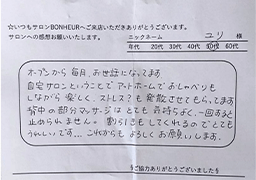 ☆いつもサロンBONHEURへご来店いただきありがとうございます。
サロンへの感想お願いいたします。
ニックネーム ユリ 様
年代 20代 30代 40代 50代 60代
オープンから毎月、お世話になってます
自宅サロンということでアットホームでおしゃべりも
しながら楽しく、ストレス?も発散させてもらってます
背中の部分マッサージはとても気持ちよく、一回すると
止められません。割引きもしてくれるのでとても
うれしいです… これからもよろしくお願いします。
ご協力ありがとうございました